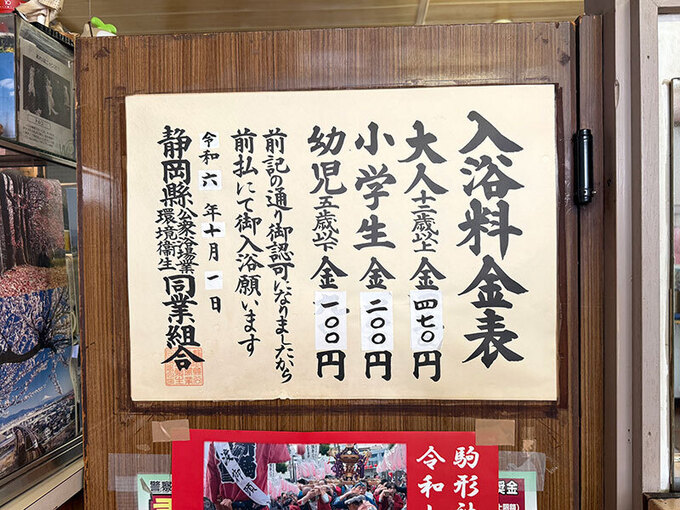 入浴料金表
大人十二歳以上 金四七〇円
小学生 金二〇〇円
幼児五歳以下 金一〇〇円
前記の通り御認可になりましたから
前払にて御入浴願います
令和六年十月一日
静岡縣公衆浴場業環境衛生同業組合
駒形
令和
警察